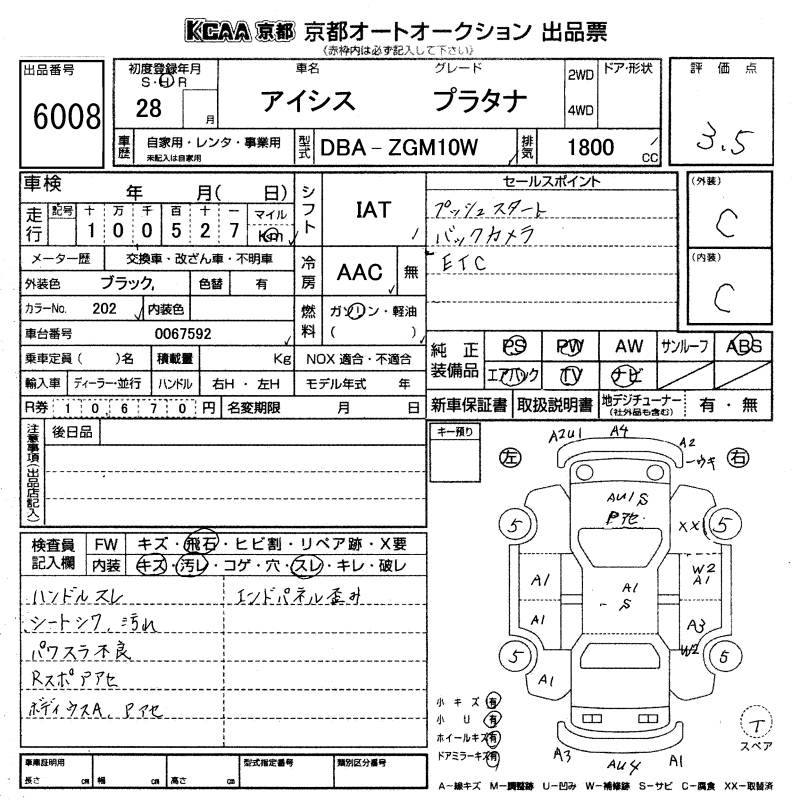 KCAA 京都 京都オートオークション 出品票
(赤枠内は必ず記入して下さい)
出品番号
6008
初度登録年月
S・H R
28 月
車名 グレード
アイシス プラタナ
2WD
4WD
ドア・形状
評価点
3.5
車歴 自家用・レンタ・事業用
未記入は自家用
型式 DBA-ZGM10W
排気 1800 CC
車検 年 月( 日)
走行 記号 十 万 千 百 十 一 マイル
1 0 0 5 2 7 Km
メーター歴 交換車・改ざん車・不明車
外装色 ブラック, 色替 有
カラーNo. 202 内装色
車台番号 0067592
乗車定員( )名 積載量 Kg NOX 適合・不適合
輸入車 ディーラー・並行 ハンドル 右H・左H モデル年式 年
R券 1 0,6 7 0 円 名変期限 月 日
シフト IAT
冷房 AAC 無
燃料 ガソリン・軽油
( )
セールスポイント
プッシュスタート
バックカメラ
ETC
(外装)
C
(内装)
C
純正装備品 PS PW AW サンルーフ ABS
エアバック TV ナビ
新車保証書 取扱説明書 地デジチューナー
(社外品も含む) 有・無
注意事項(出品店記入)
後日品
キー預り
検査員記入欄
FW キズ・飛石・ヒビ割・リペア跡・X要
内装 キズ・汚レ・コゲ・穴・スレ・キレ・破レ
ハンドルスレ エンドパネル歪み
シートシワ、汚れ
パワスラ不良
Rスポアアセ
ボディウスA、Pアセ
左 右
A2U1 A4 A2
ーウキ
AU1 S
Pアセ
5 5
XX
A1 A1 W2
A1
S
A1 A3
W2
5 5
A1
A3 AU4 A1
小キズ 有
小U 有
ホイールキズ 有
ドアミラーキズ 有
T
スペア
車庫証明用
長さ cm 幅 cm 高さ cm
型式指定番号
類別区分番号
A-線キズ M-調整跡 U-凹み W-補修跡 S-サビ C-腐食 XX-取替済